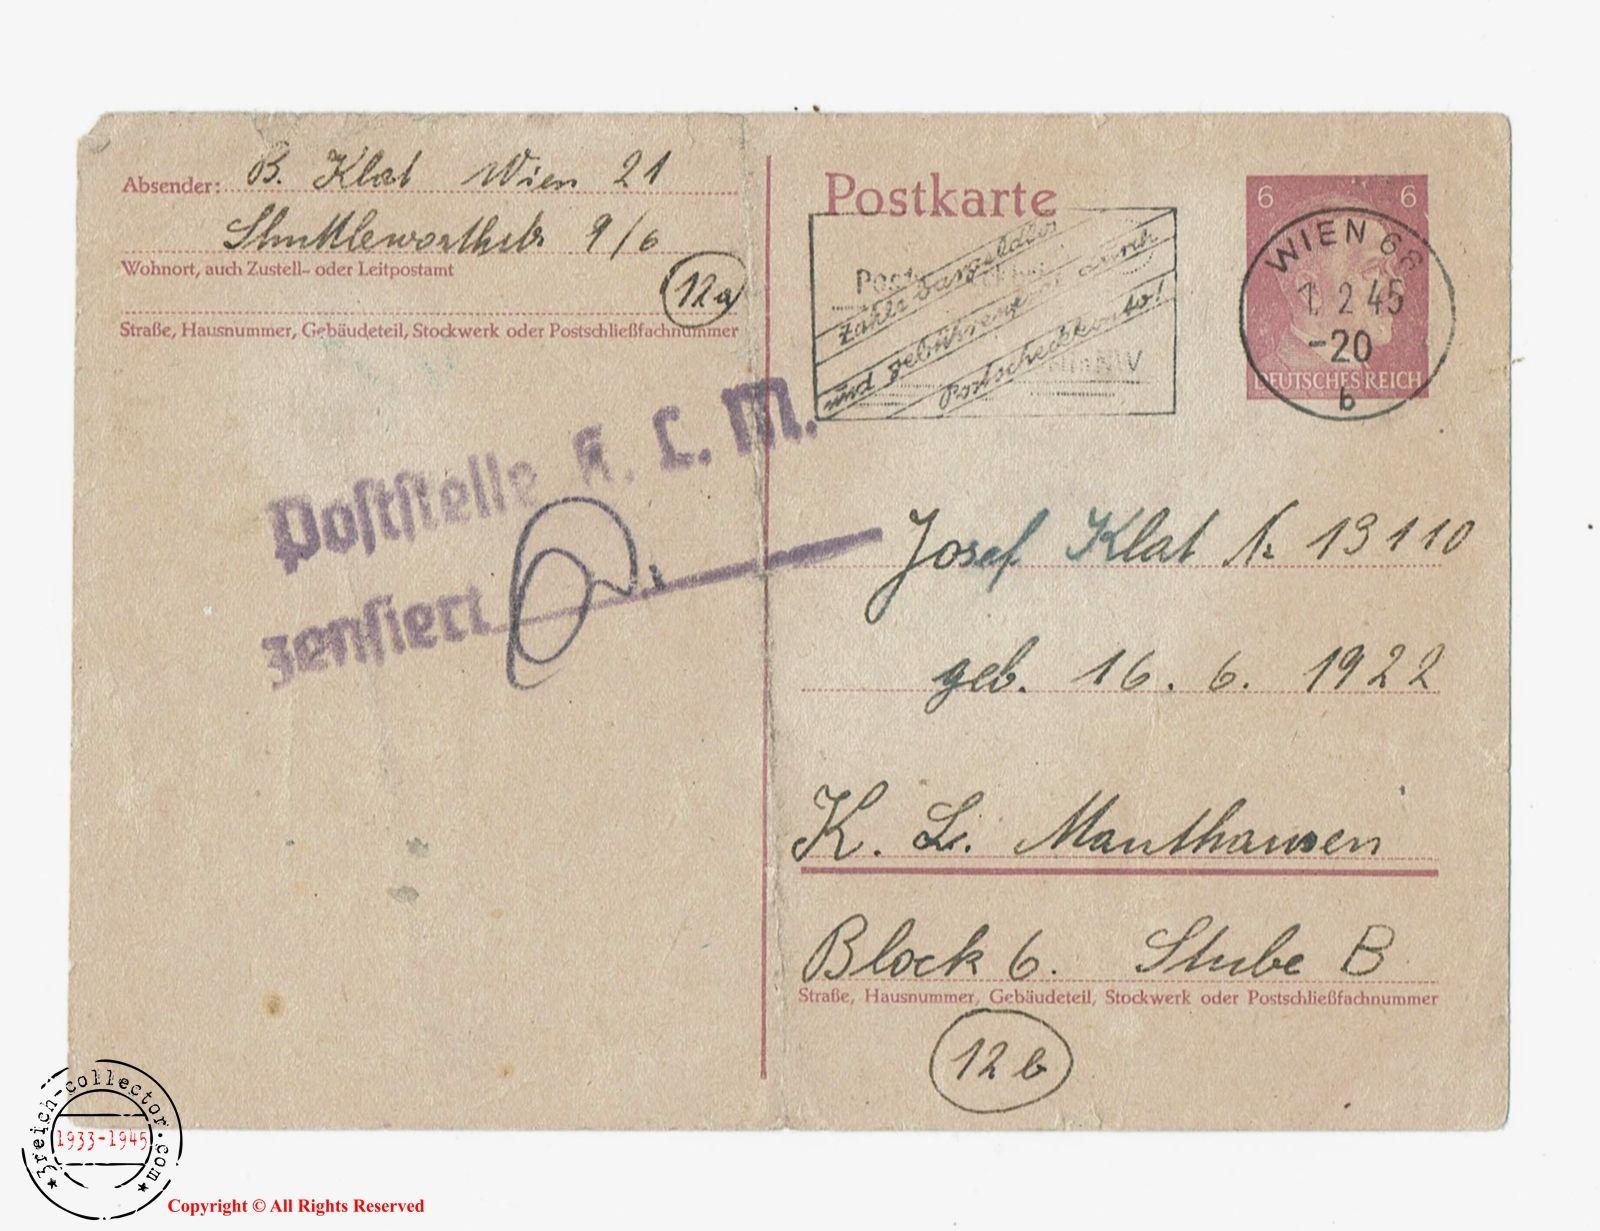 Absender: B. Klat Wien 21
Shuttleworthstr 9/6
Wohnort, auch Zustell- oder Leitpostamt
12a
Straße, Hausnummer, Gebäudeteil, Stockwerk oder Postschließfachnummer
Poststelle K. L. M.
zensiert
Postkarte
Zahlt bargeldlos
und gebührenfrei durch
Postscheckkonto!
6 6
DEUTSCHES REICH
WIEN 68
1. 2 45
-20
b
Josef Klat Nr 13110
geb. 16. 6. 1922
K. L. Mauthausen
Block 6. Stube B
Straße, Hausnummer, Gebäudeteil, Stockwerk oder Postschließfachnummer
12b
3reich-collector.com
1933-1945
Copyright © All Rights Reserved